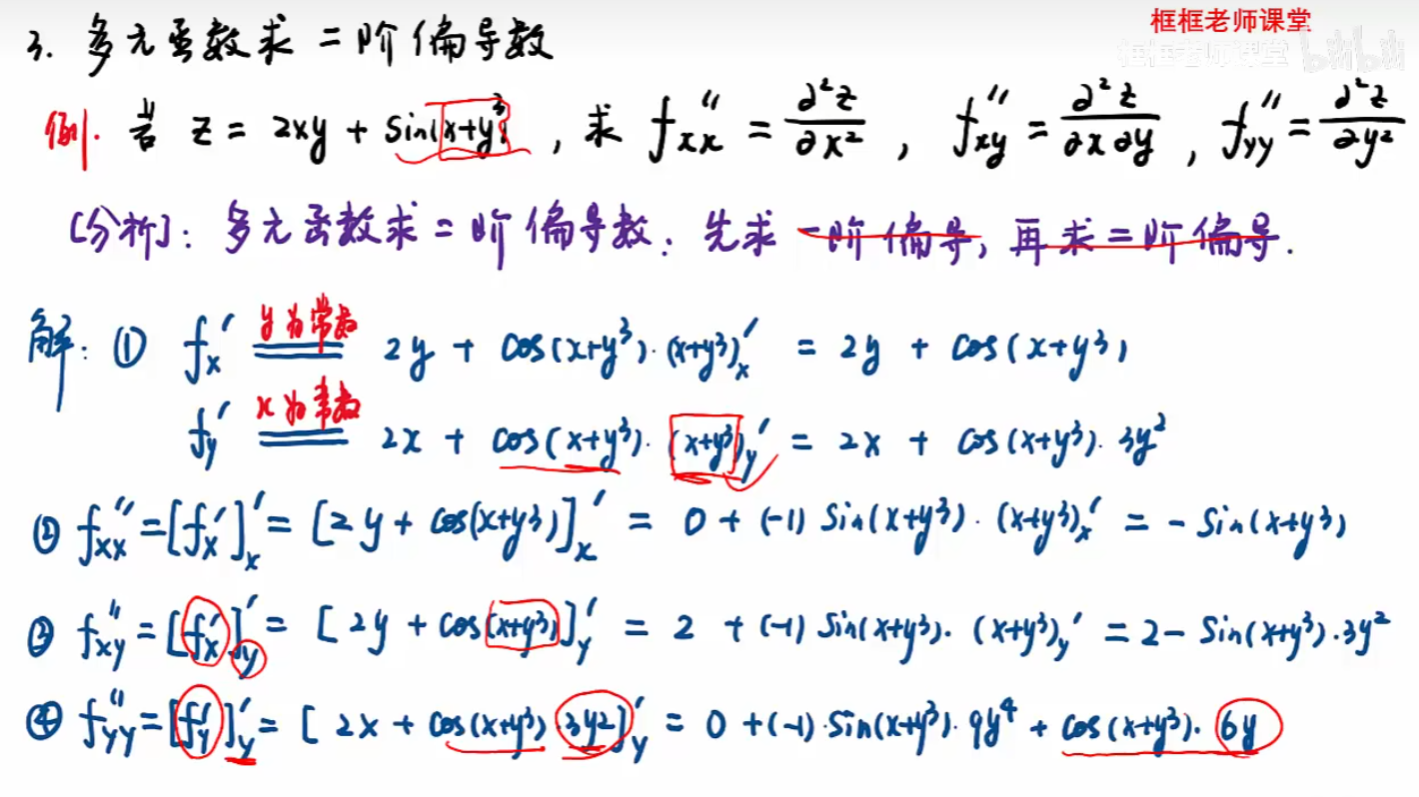 框框老师课堂
框框老师课堂 bilibili
3. 多元函数求二阶偏导数
例. 若 z = 2xy + sin(x+y³), 求 f''xx = ∂²z/∂x², f''xy = ∂²z/∂x∂y, f''yy = ∂²z/∂y²
[分析]: 多元函数求二阶偏导数: 先求一阶偏导, 再求二阶偏导.
解: ① f'x y为常数 2y + cos(x+y³)·(x+y³)'x = 2y + cos(x+y³)
f'y x为常数 2x + cos(x+y³)·(x+y³)'y = 2x + cos(x+y³)·3y²
② f''xx = [f'x]'x = [2y + cos(x+y³)]'x = 0 + (-1) sin(x+y³)·(x+y³)'x = - sin(x+y³)
③ f''xy = [f'x]'y = [2y + cos(x+y³)]'y = 2 + (-1) sin(x+y³)·(x+y³)y' = 2 - sin(x+y³)·3y²
④ f''yy = [f'y]'y = [2x + cos(x+y³) 3y2]'y = 0 + (-1)·sin(x+y³)·9y⁴ + cos(x+y³)·6y